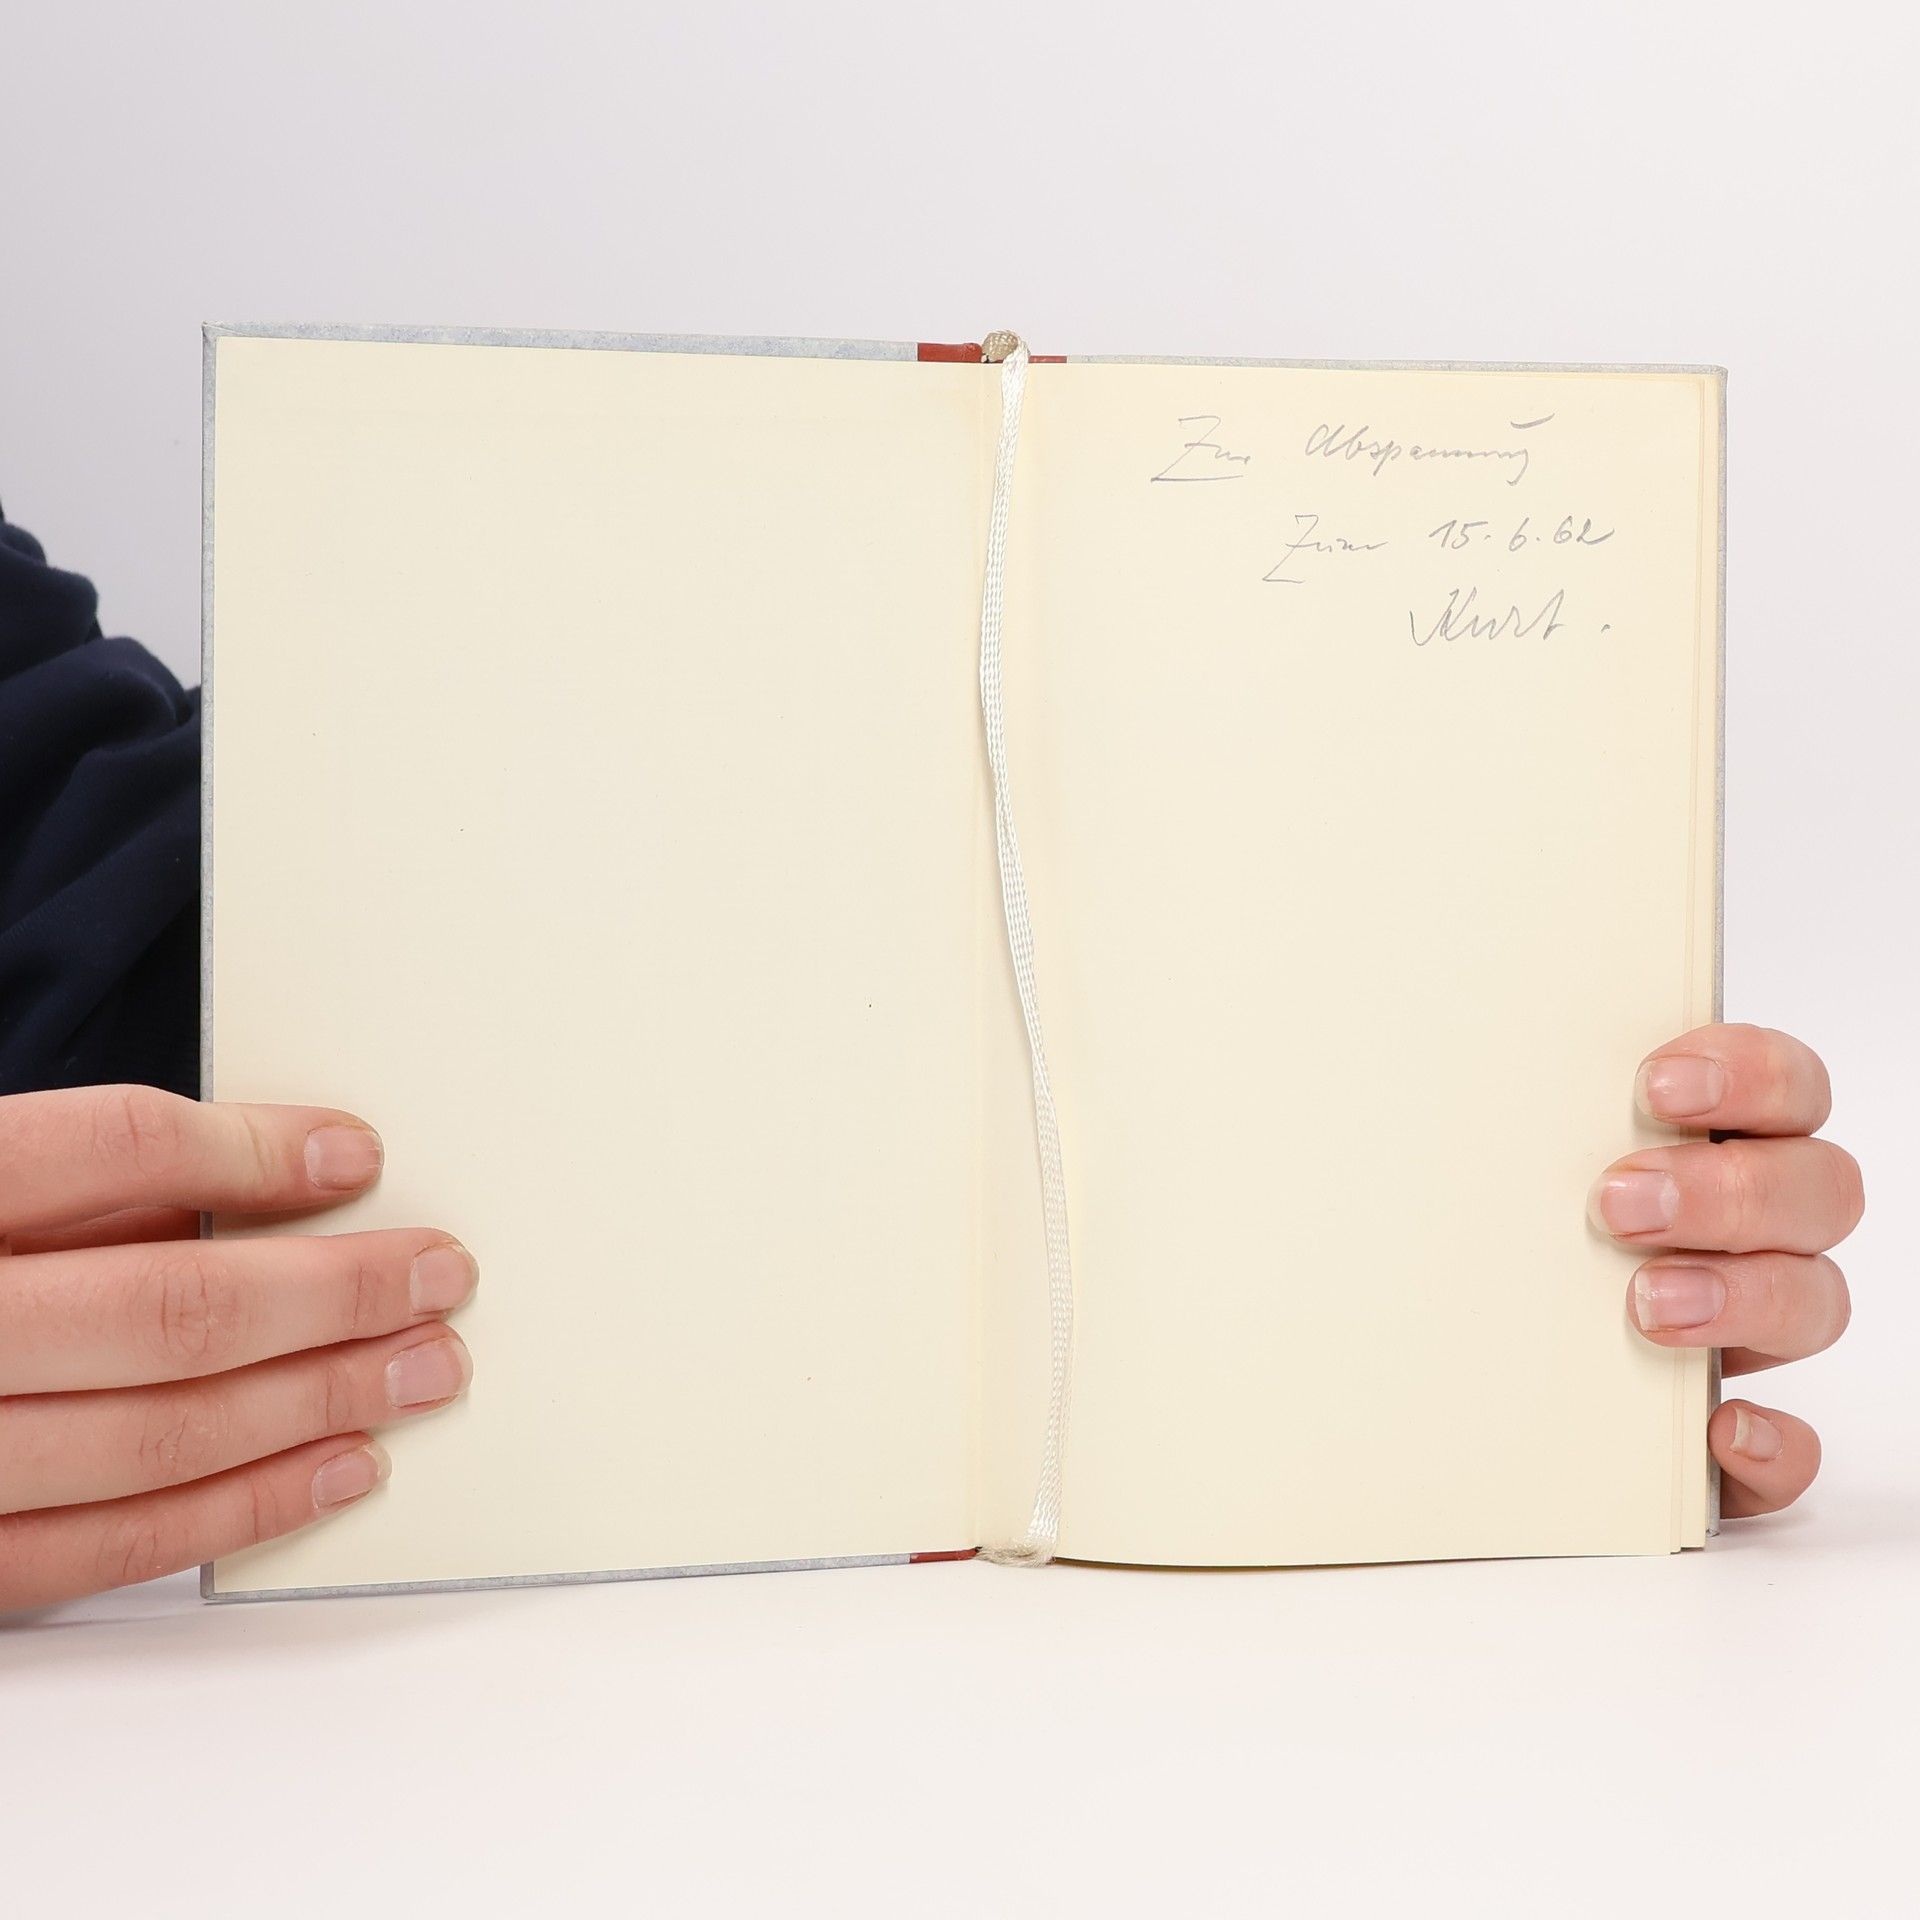 Zur Abspannung
Zum 15.6.62
Kurt.